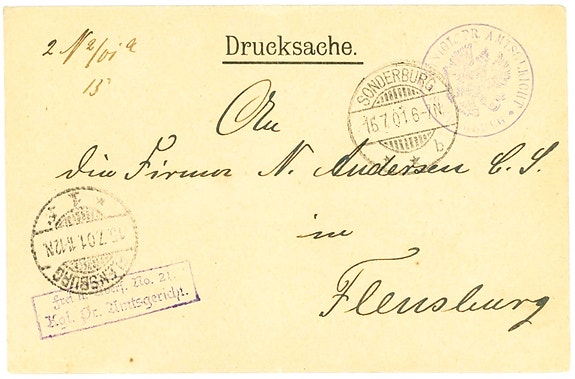 2 N 2/01 a
15
Drucksache.
KÖNIGL. PR. AMTSGERICHT
SONDERBURG
15.7.01.6-7N
b
An
die Firma N. Andersen C. S.
in
Flensburg
FLENSBURG
1
15.7.01.11-12N
Frei lt. Avers. No. 21.
Kgl. Pr. Amtsgericht.